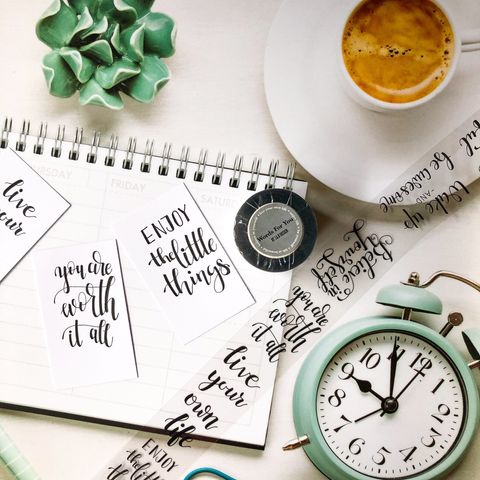 FRIDAY
live
your
you are
worth
it all
ENJOY
the little
things
Words For You
wake up
-AND-
be awesome
Believe
in
Yourself
you are
worth
it all
live
your
own
life
ENJOY
the little
things
12
1
2
3
4
5
6
7
8
9
10